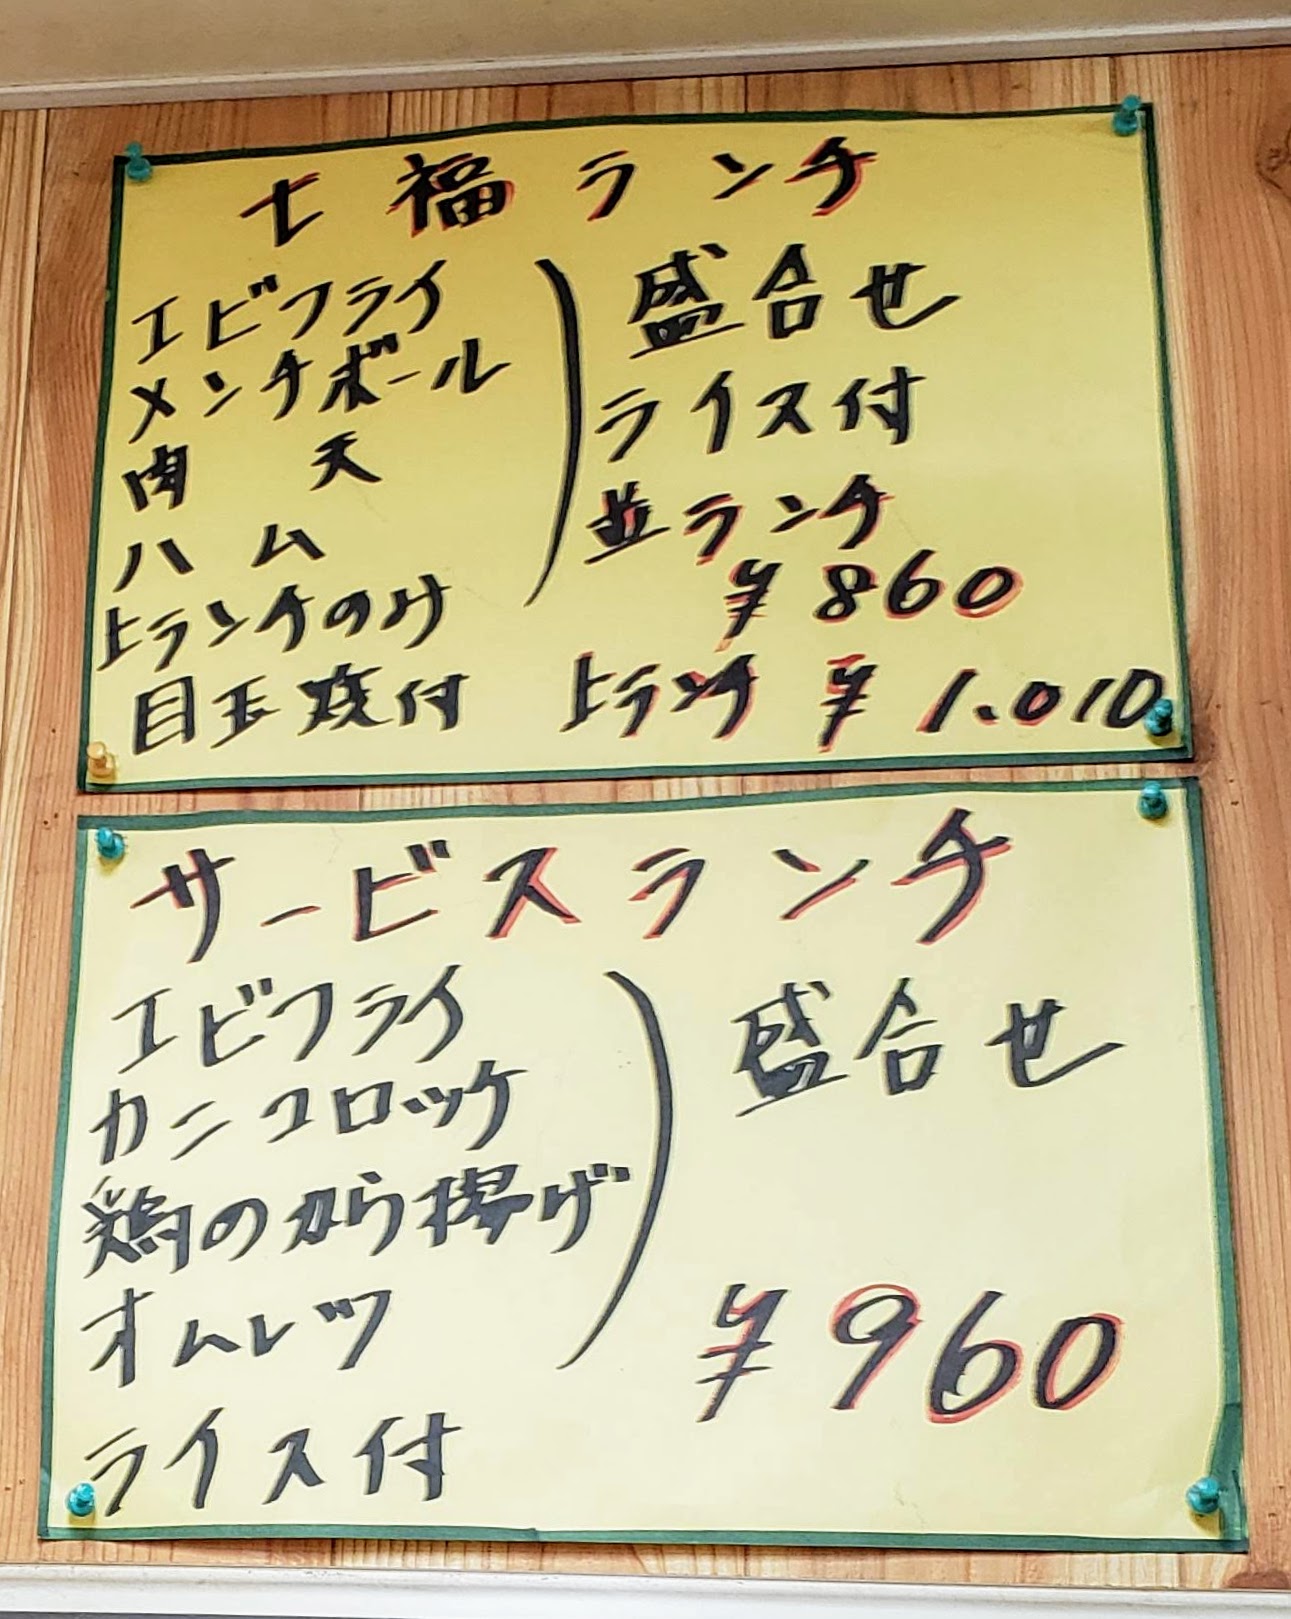 七福ランチ
エビフライ
メンチボール
肉天
ハム
上ランチのみ
目玉焼付
盛合せ
ライス付
並ランチ
¥860
上ランチ ¥1.010
サービスランチ
エビフライ
カニコロッケ
鶏のから揚げ
オムレツ
ライス付
盛合せ
¥960